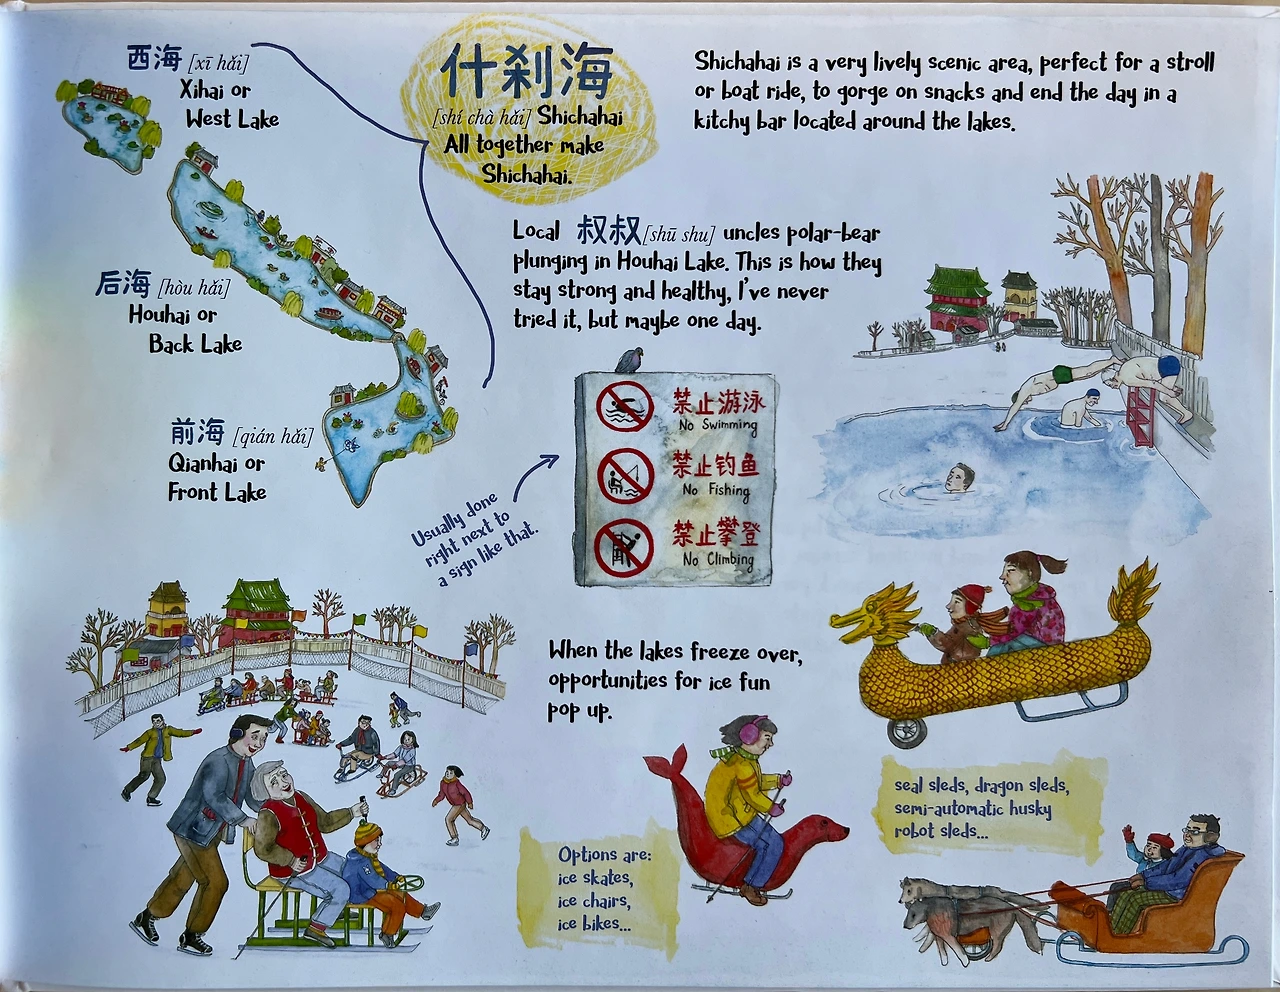 西海 [xī hǎi]
Xihai or
West Lake
什刹海
[shí chà hǎi] Shichahai
All together make
Shichahai.
Shichahai is a very lively scenic area, perfect for a stroll
or boat ride, to gorge on snacks and end the day in a
kitchy bar located around the lakes.
Local 叔叔 [shū shu] uncles polar-bear
plunging in Houhai Lake. This is how they
stay strong and healthy, I've never
tried it, but maybe one day.
后海 [hòu hǎi]
Houhai or
Back Lake
前海 [qián hǎi]
Qianhai or
Front Lake
Usually done
right next to
a sign like that.
禁止游泳
No Swimming
禁止钓鱼
No Fishing
禁止攀登
No Climbing
When the lakes freeze over,
opportunities for ice fun
pop up.
Options are:
ice skates,
ice chairs,
ice bikes...
seal sleds, dragon sleds,
semi-automatic husky
robot sleds...